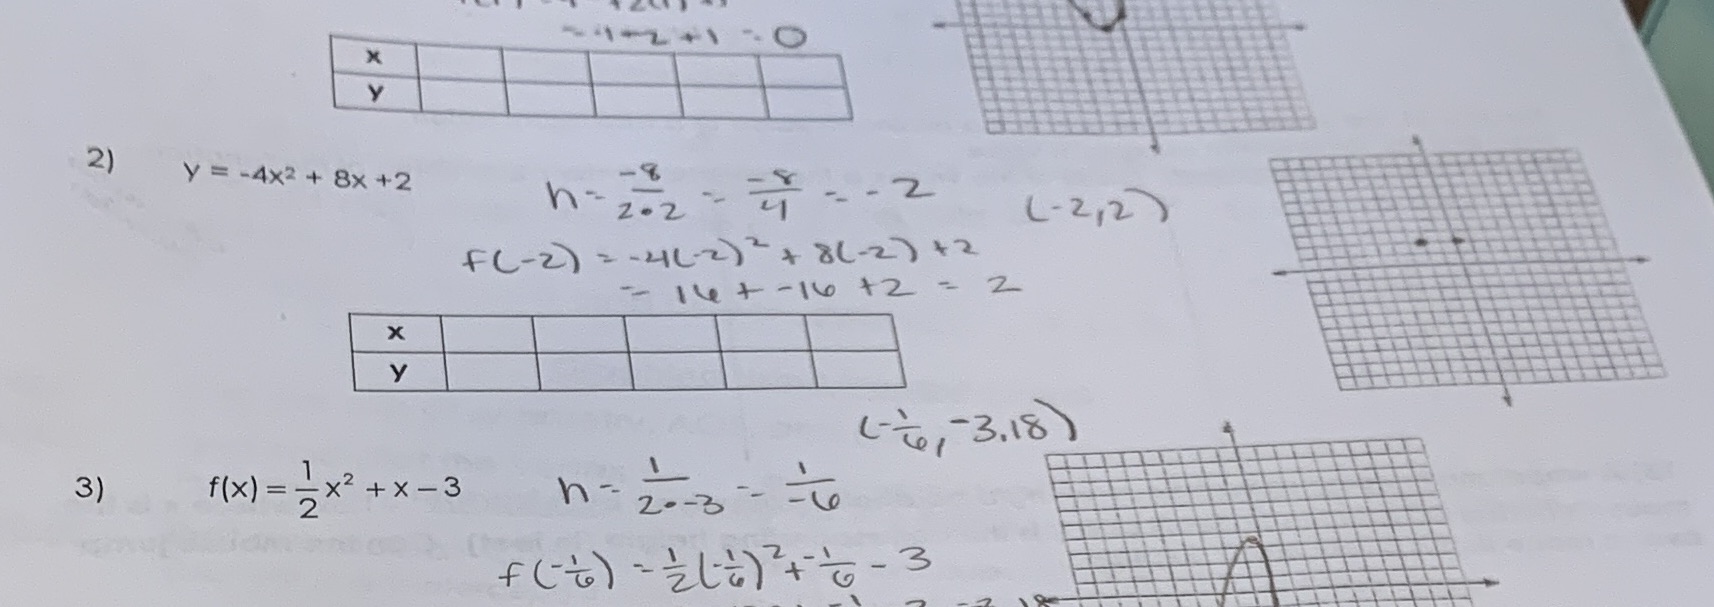 = -1+2+1 = 0
x
y
2) y = -4x² + 8x +2
h = -8/2•2 = -8/4 = -2 (-2,2)
f(-2) = -4(-2)² + 8(-2) +2
= 16 + -16 +2 = 2
x
y
(-1/6, -3.18)
3) f(x) = 1/2 x² + x - 3
h = 1/2•-3 = 1/-6
f(-1/6) = 1/2(-1/6)² + -1/6 - 3